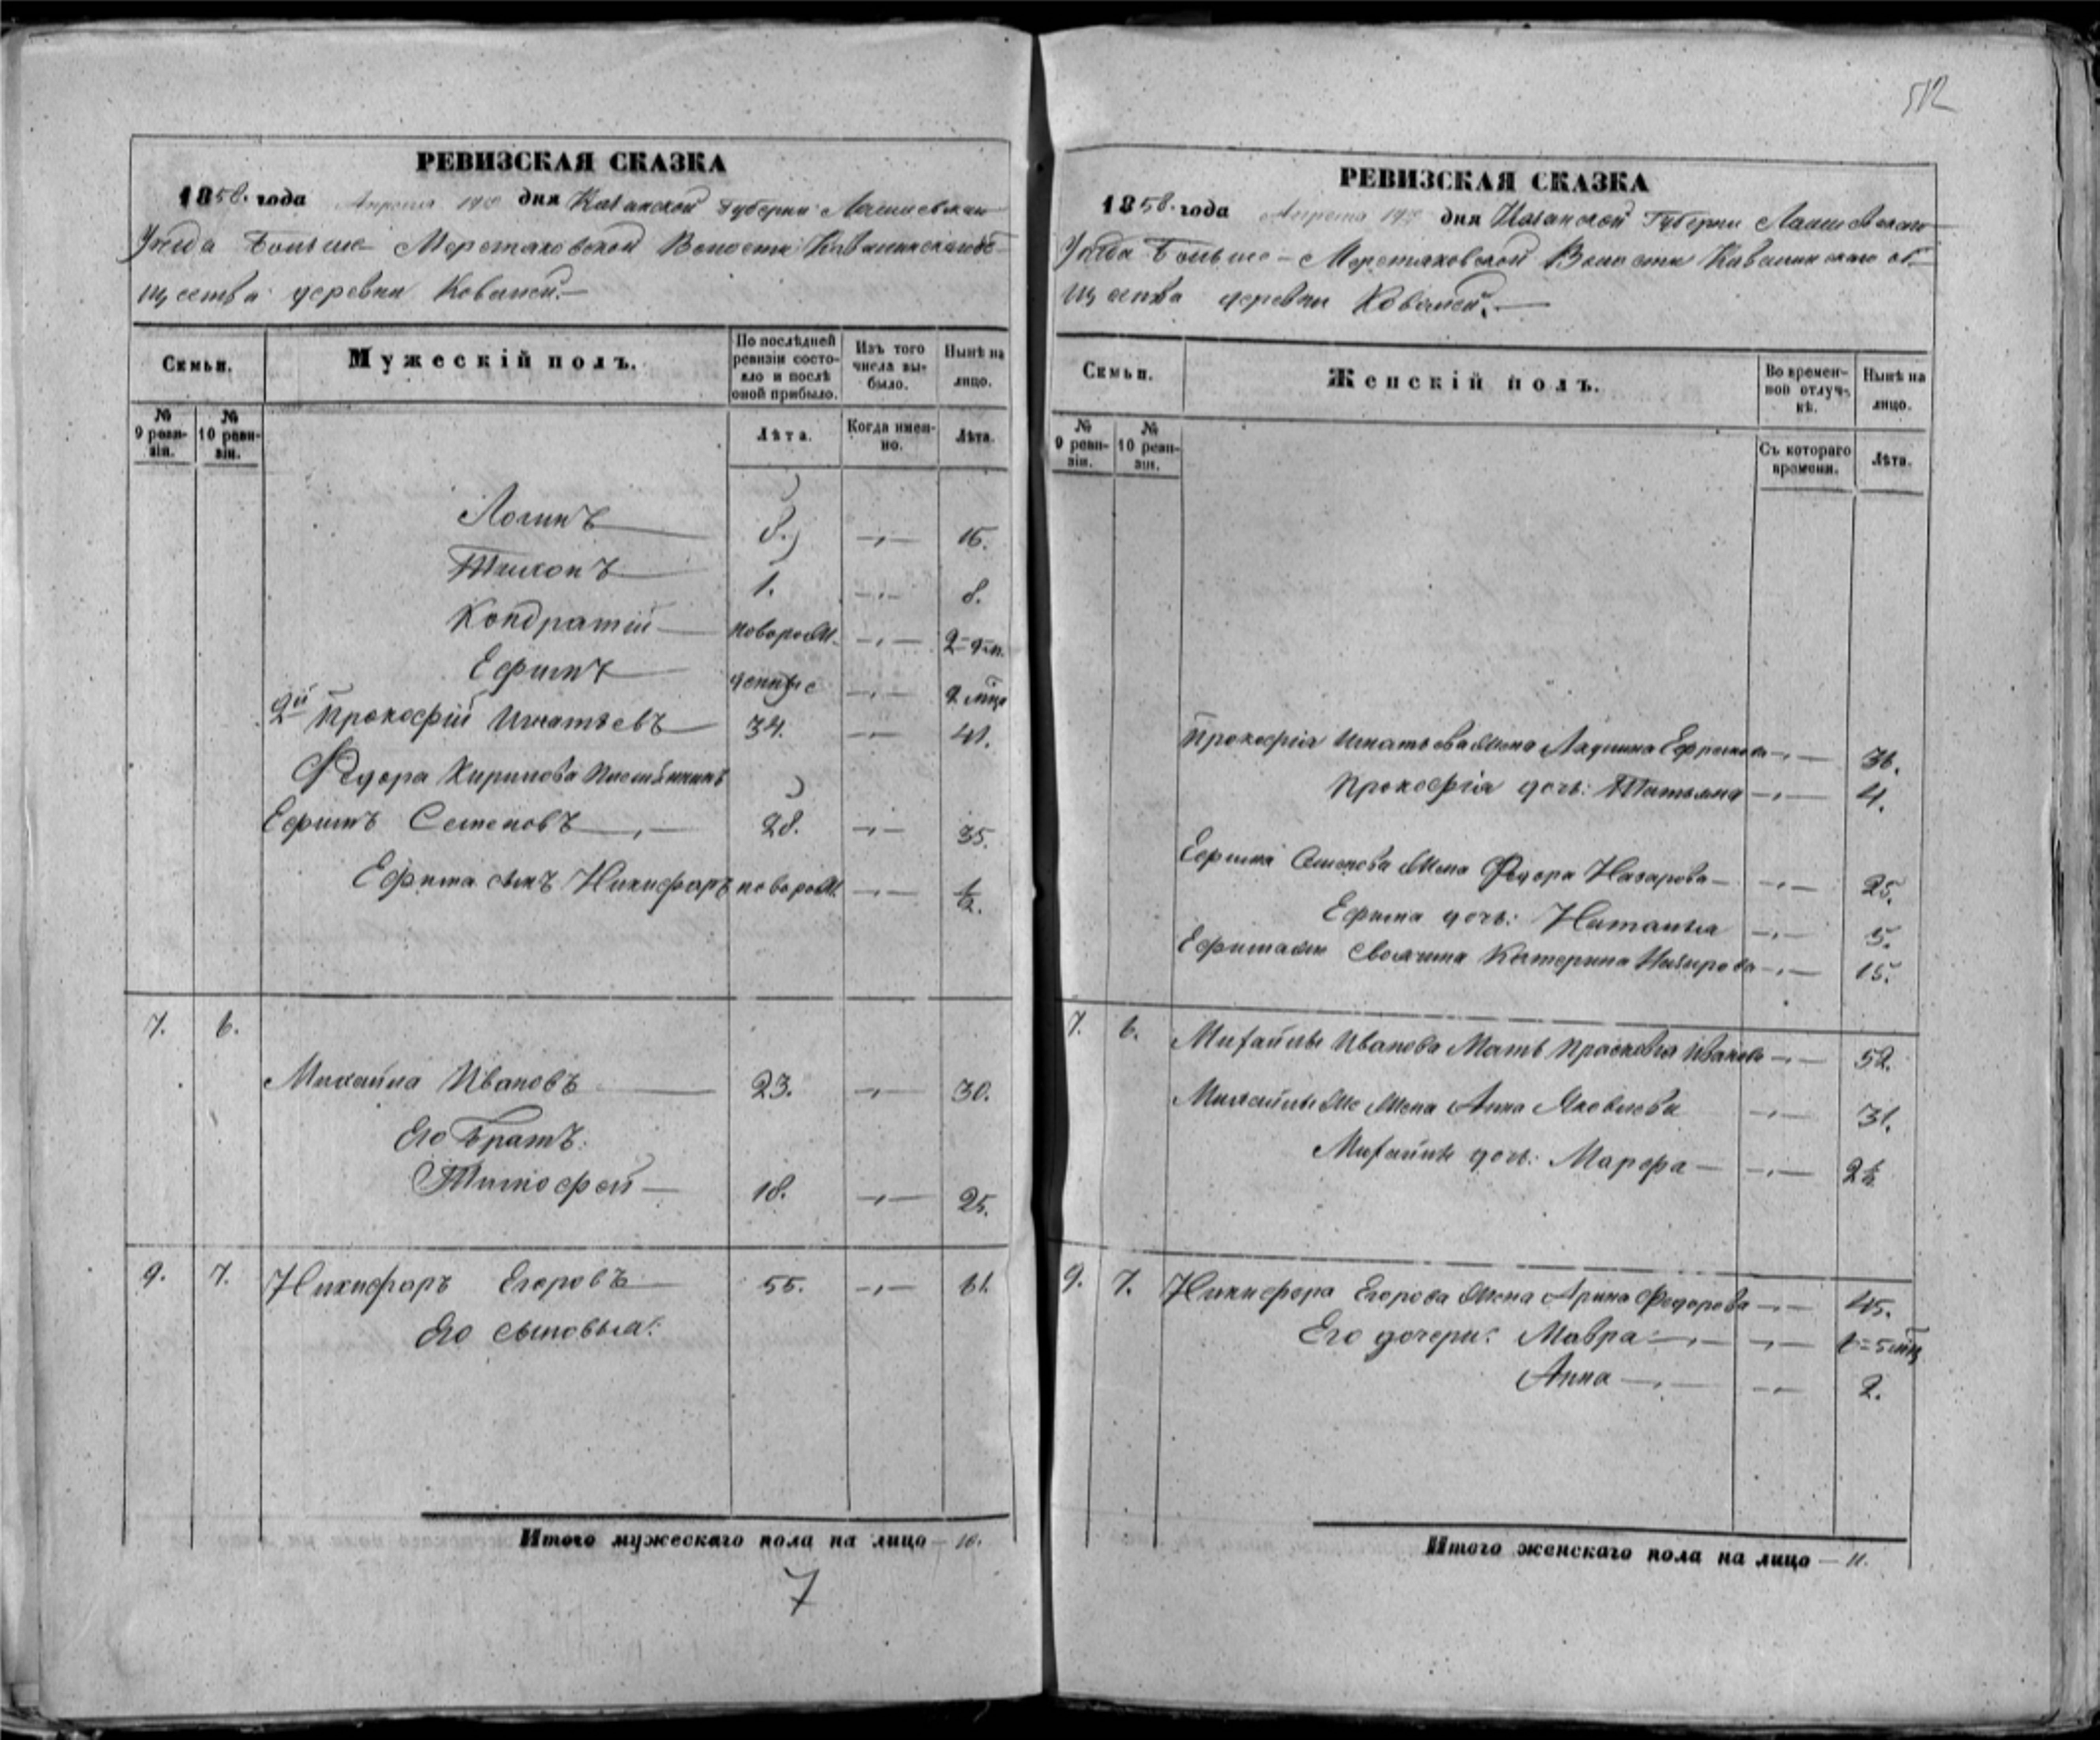 РЕВИЗСКАЯ СКАЗКА
1858. года Апреля дня Казанской Губернiи Лаишевскаго
Уѣзда Больше-Меретяковской Волости Кавалинскаго об-
щества деревни Ковалей.-
Семьи.
Мужескiй полъ.
По послѣдней ревизiи состояло и послѣ оной прибыло.
Изъ того числа выбыло.
Нынѣ на лицо.
№ 9 ревизiи.
№ 10 ревизiи.
Лѣта.
Когда именно.
Лѣта.
Логинъ 8. 15.
Тихонъ 1. 8.
Кондратiй новорож. 2
Ефимъ 2
2й Прокофiй Игнатьевъ 34. 41.
Федора Кирилова
Ефимъ Семеновъ 28. 35.
Ефима сынъ Никифаръ новорож. ½.
7. 6.
Михайла Ивановъ 23. 30.
Его братъ:
Тимофей 18. 25.
9. 7. Никифаръ Егоровъ 55. 61.
Его сыновья:
Итого мужескаго пола на лицо - 10.
7
512
РЕВИЗСКАЯ СКАЗКА
1858. года Апреля дня Казанской Губернiи Лаишевскаго
Уѣзда Больше-Меретяковской Волости Кавалинскаго об-
щества деревни Ковалей.
Семьи.
Женскiй полъ.
Во временной отлучкѣ.
Нынѣ на лицо.
№ 9 ревизiи.
№ 10 ревизiи.
Съ котораго времени.
Лѣта.
Прокофiя Игнатьева жена Ефремова 36.
Прокофiя дочь: Татьяна 4.
Ефима Семенова жена Федора Назарова 25.
Ефима дочь: Наталья 5.
Ефима же своячина Катерина Назарова 15.
7. 6. Михайлы Иванова Мать Прасковья Иванова 52.
Михайлы же жена Анна Яковлева 31.
Михайлы дочь: Марфа 2½
9. 7. Никифора Егорова жена Арина Федорова 45.
Его дочери: Мавра
Анна 2.
Итого женскаго пола на лицо - 11.